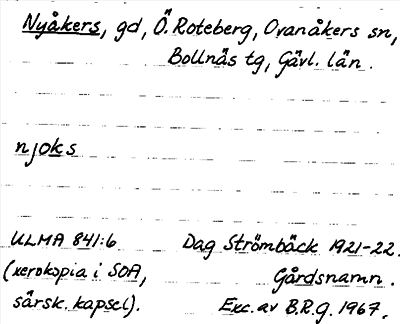 Nyåkers, gd, Ö. Roteberg, Ovanåkers sn,
Bollnäs tg, Gävl. län.
njoks
ULMA 841:6 Dag Strömbäck 1921-22.
(xerokopia i SOA, Gårdsnamn.
särsk. kapsel). Exc. av B.R.g. 1967.